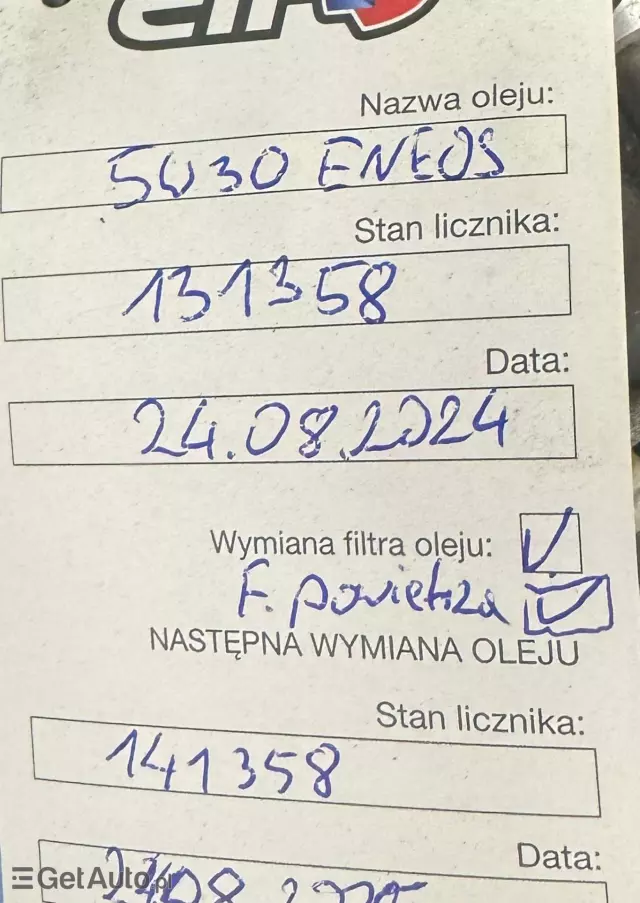 elf
Nazwa oleju:
5W30 ENEOS
Stan licznika:
131358
Data:
24.08.2024
Wymiana filtra oleju:
F. powietrza
NASTĘPNA WYMIANA OLEJU
Stan licznika:
141358
Data:
GetAuto.pl